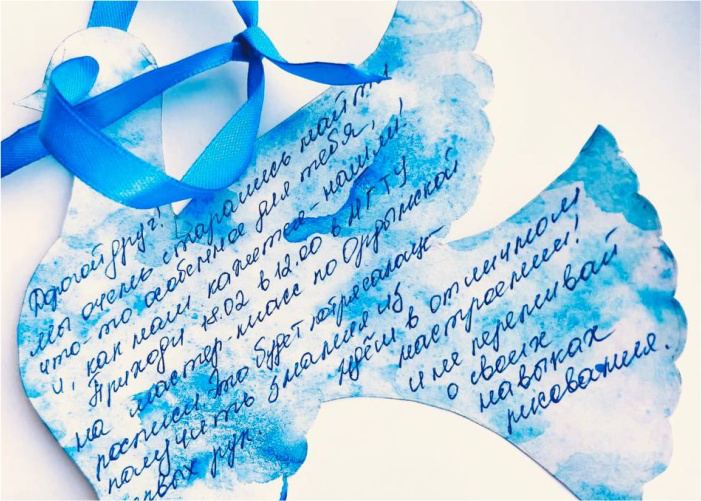 Дорогой друг!
Мы очень старались найти
что-то особенное для тебя,
и, как нам кажется - нашли!
Приходи 18.02 в 12.00 в НГТУ
на мастер-класс по Ордынской
росписи. Это будет потрясающе-
получить знания из
первых рук.
Ждём в отличном
настроении!
и не переживай
о своих
навыках
рисования.